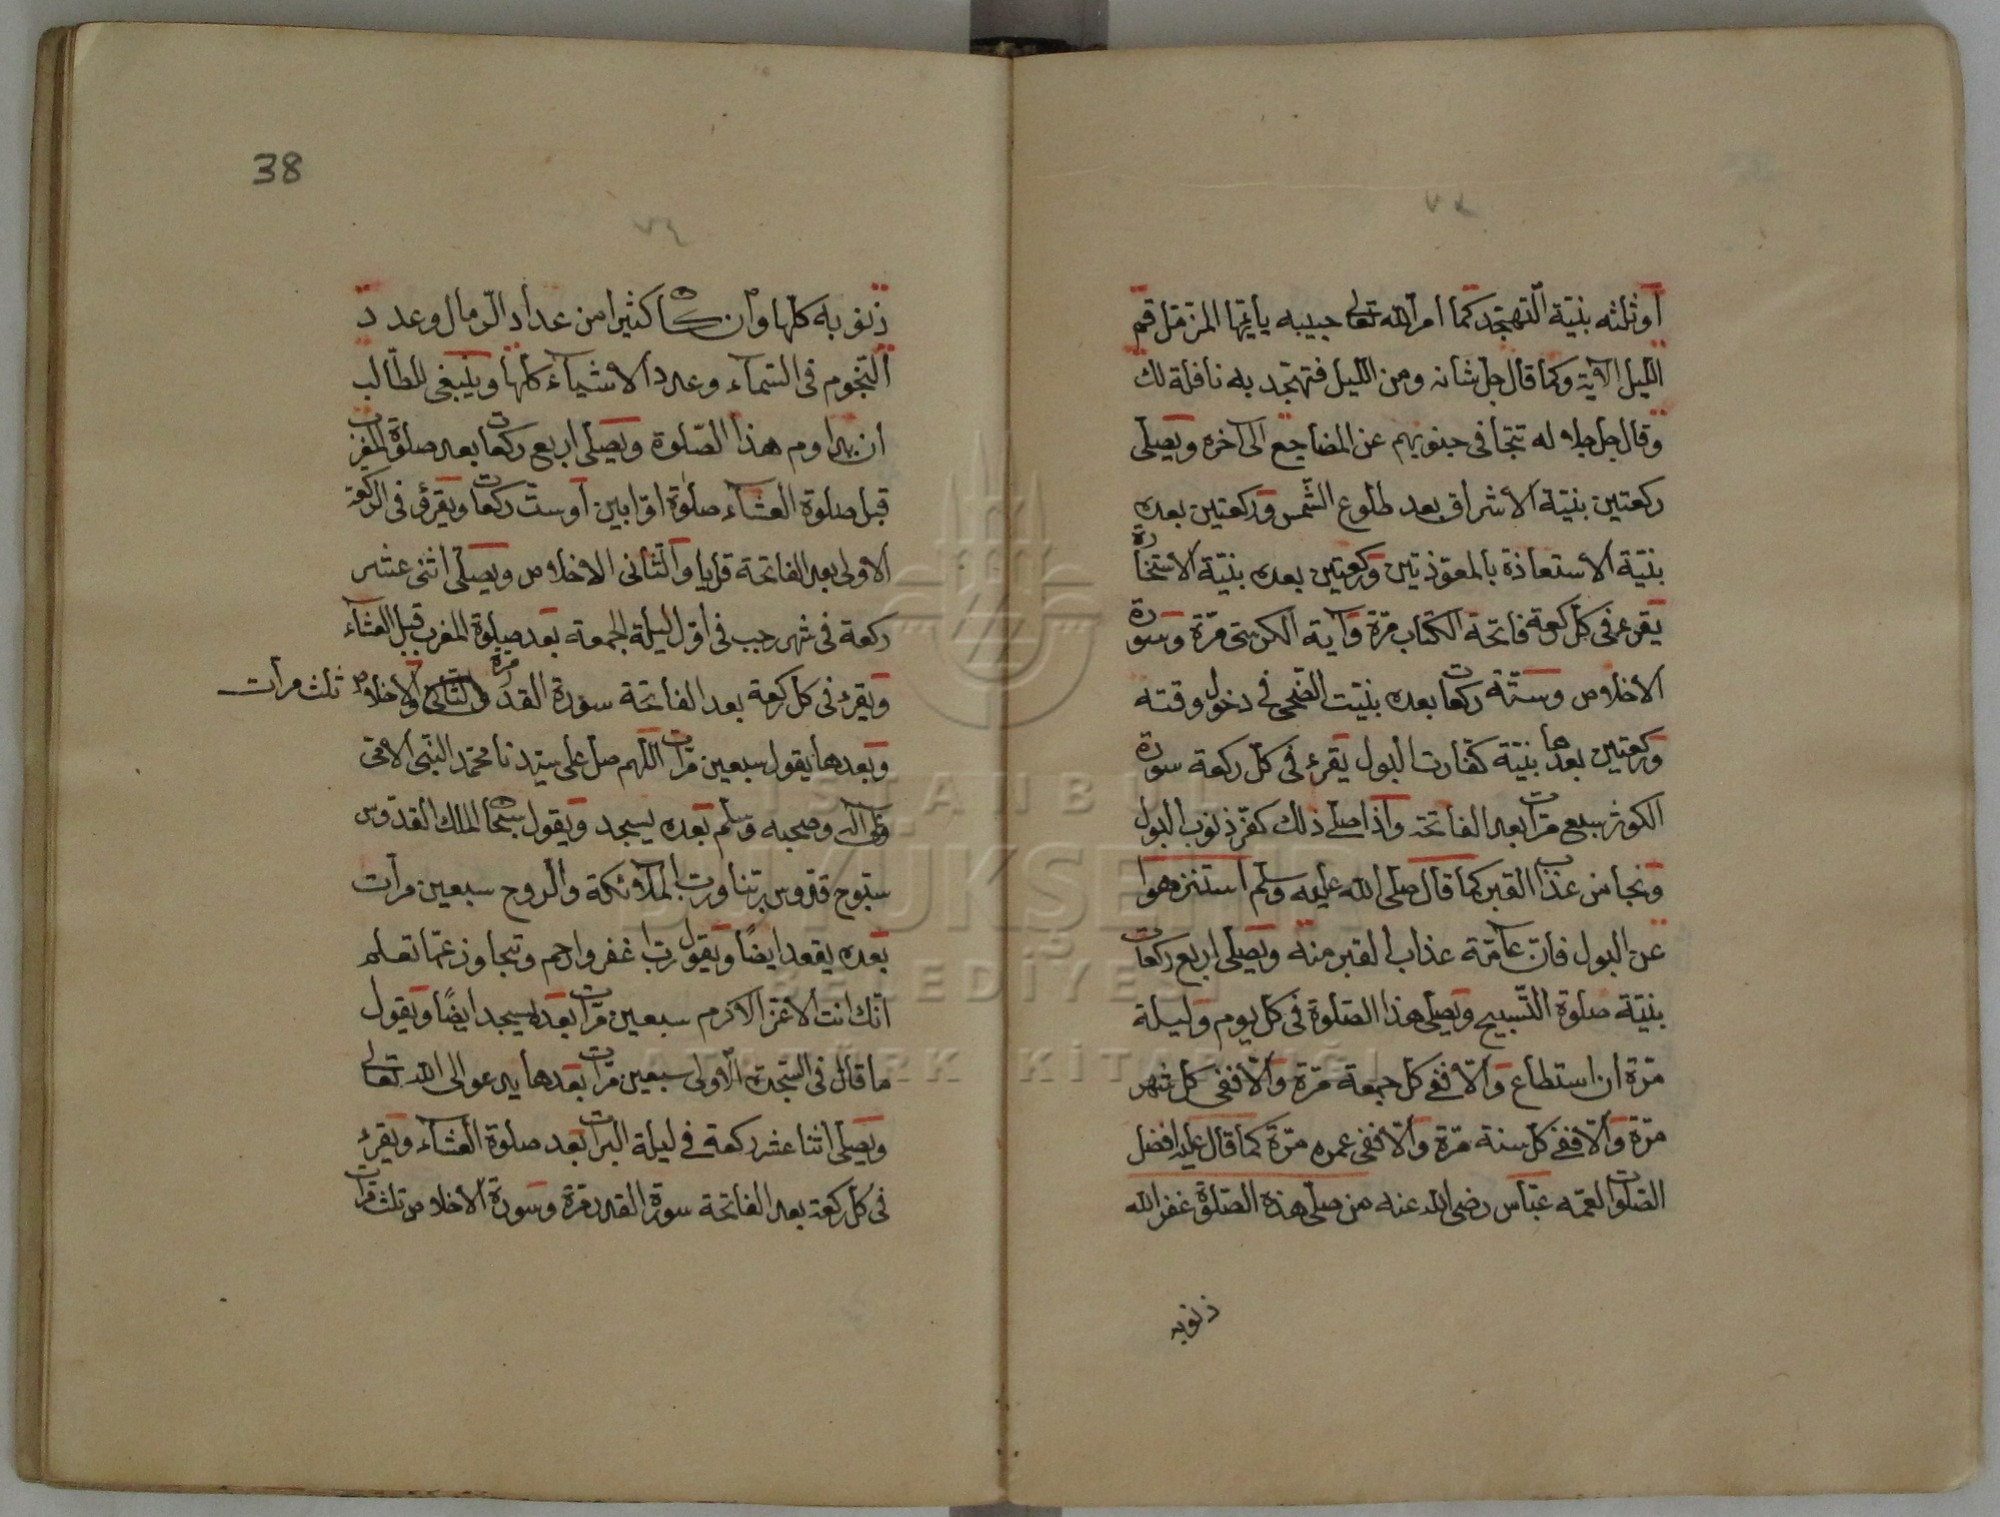 أو ثلثه بنيّة التهجّد كما امر الله تعالى حبيبه يا ايّها المزمّل قم
الليل الآية وكما قال جل شانه ومن الليل فتهجّد به نافلة لك
وقال جل جلاله تتجافى جنوبهم عن المضاجع الى آخره ويصلى
ركعتين بنيّة الأشراق بعد طلوع الشمس وركعتين بعده
بنيّة الأستعاذة بالمعوّذتين وركعتين بعده بنيّة الأستخارة
يقرء في كل ركعة فاتحة الكتاب مرّة وآية الكرسى مرّة وسورة
الأخلاص وستّة ركعات بعده بنيّت الضّحى في دخول وقته
وركعتين بعدها بنيّة كفّارت البول يقرء في كل ركعة سورة
الكوثر سبع مرّات بعد الفاتحة واذا صلى ذلك كفّر ذنوب البول
ونجا من عذاب القبر كما قال صلى الله عليه وسلم استنزهوا
عن البول فانّ عامّة عذاب القبر منه ويصلى اربع ركعات
بنيّة صلوة التّسبيح ويصلى هذا الصّلوة في كل يوم وليلة
مرّة ان استطاع والّا ففي كل جمعة مرّة والّا ففى كل شهر
مرّة والّا ففي كل سنة مرّة والّا ففى عمره مرّة كما قال عليه افضل
الصّلوات لعمّه عبّاس رضى الله عنه من صلى هذه الصّلوة غفر الله
ذنوبه
38
٧٤
ذنوبه كلّها وان كانت كثيرا من عداد الرّمال وعدد
النّجوم في السّمآء وعدد الأشيآء كلّها وينبغى للطّالب
ان يداوم هذا الصّلوة ويصلى اربع ركعات بعد صلوة المغرب
قبل صلوة العشآء صلوة اوّابين أو ستّ ركعات ويقرء في الركعة
الاولى بعد الفاتحة قل يا والثّانى الاخلاص ويصلى اثنى عشر
ركعة في شهر رجب في اوّل ليلة الجمعة بعد صلوة المغرب قبل العشآء
ويقرء في كل ركعة بعد الفاتحة سورة القدر مرة والأخلاص ثلث مرأت
وبعدها يقول سبعين مرّات اللّهم صل على سيّدنا محمّد النّبى الأمّى
وعلى آله وصحبه وسلم بعده يسجد ويقول سبحان الملك القدّوس
سبّوح قدّوس ربّنا وربّ الملآئكة والرّوح سبعين مرأت
بعده يقعد ايضًا ويقول ربّ اغفر وارحم وتجاوز عمّا تعلم
انّك انت الأعزّ الأكرم سبعين مرّات بعده يسجد ايضًا ويقول
ما قال في السّجدة الاولى سبعين مرّات بعدها يدعو الى الله تعالى
ويصلى اثنا عشر ركعة في ليلة البرات بعد صلوة العشآء ويقرء
في كل ركعة بعد الفاتحة سورة القدر مرّة وسورة الأخلاص ثلث مرّات
ISTANBUL
BÜYÜKŞEHİR
BELEDİYESİ
ATATÜRK KİTAPLIĞI